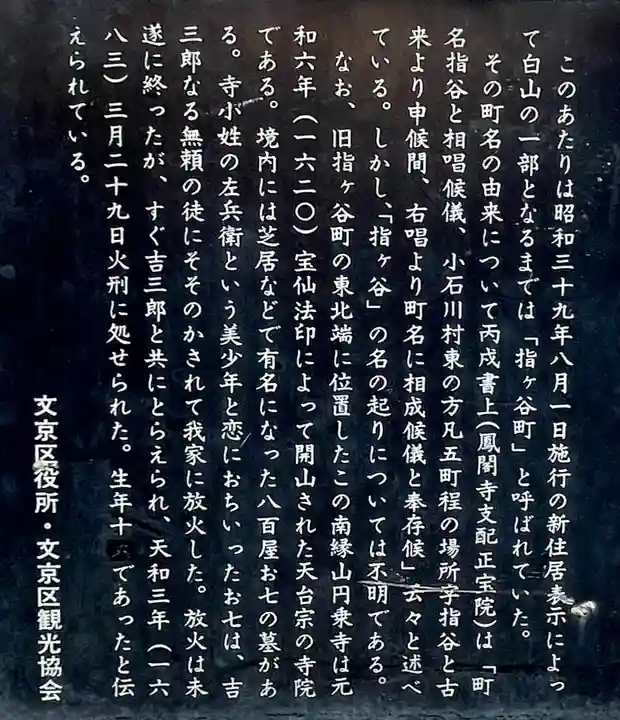 このあたりは昭和三十九年八月一日施行の新住居表示によっ
て白山の一部となるまでは「指ヶ谷町」と呼ばれていた。
その町名の由来について丙戌書上(鳳閣寺支配正宗院)は「町
名指谷と相唱候儀、小石川村東の方凡五町程の場所字指谷と古
来より申候間、右唱より町名に相成候儀と奉存候」云々と述べ
ている。しかし、「指ヶ谷」の名の起りについては不明である。
なお、旧指ヶ谷町の東北端に位置したこの南縁山円乗寺は元
和六年（一六二〇）宝仙法印によって開山された天台宗の寺院
である。境内には芝居などで有名になった八百屋お七の墓があ
る。寺小姓の左兵衛という美少年と恋におちいったお七は、吉
三郎なる無頼の徒にそそのかされて我家に放火した。放火は未
遂に終ったが、すぐ吉三郎と共にとらえられ、天和三年（一六
八三）三月二十九日火刑に処せられた。生年十 であったと伝
えられている。
文京区役所・文京区観光協会